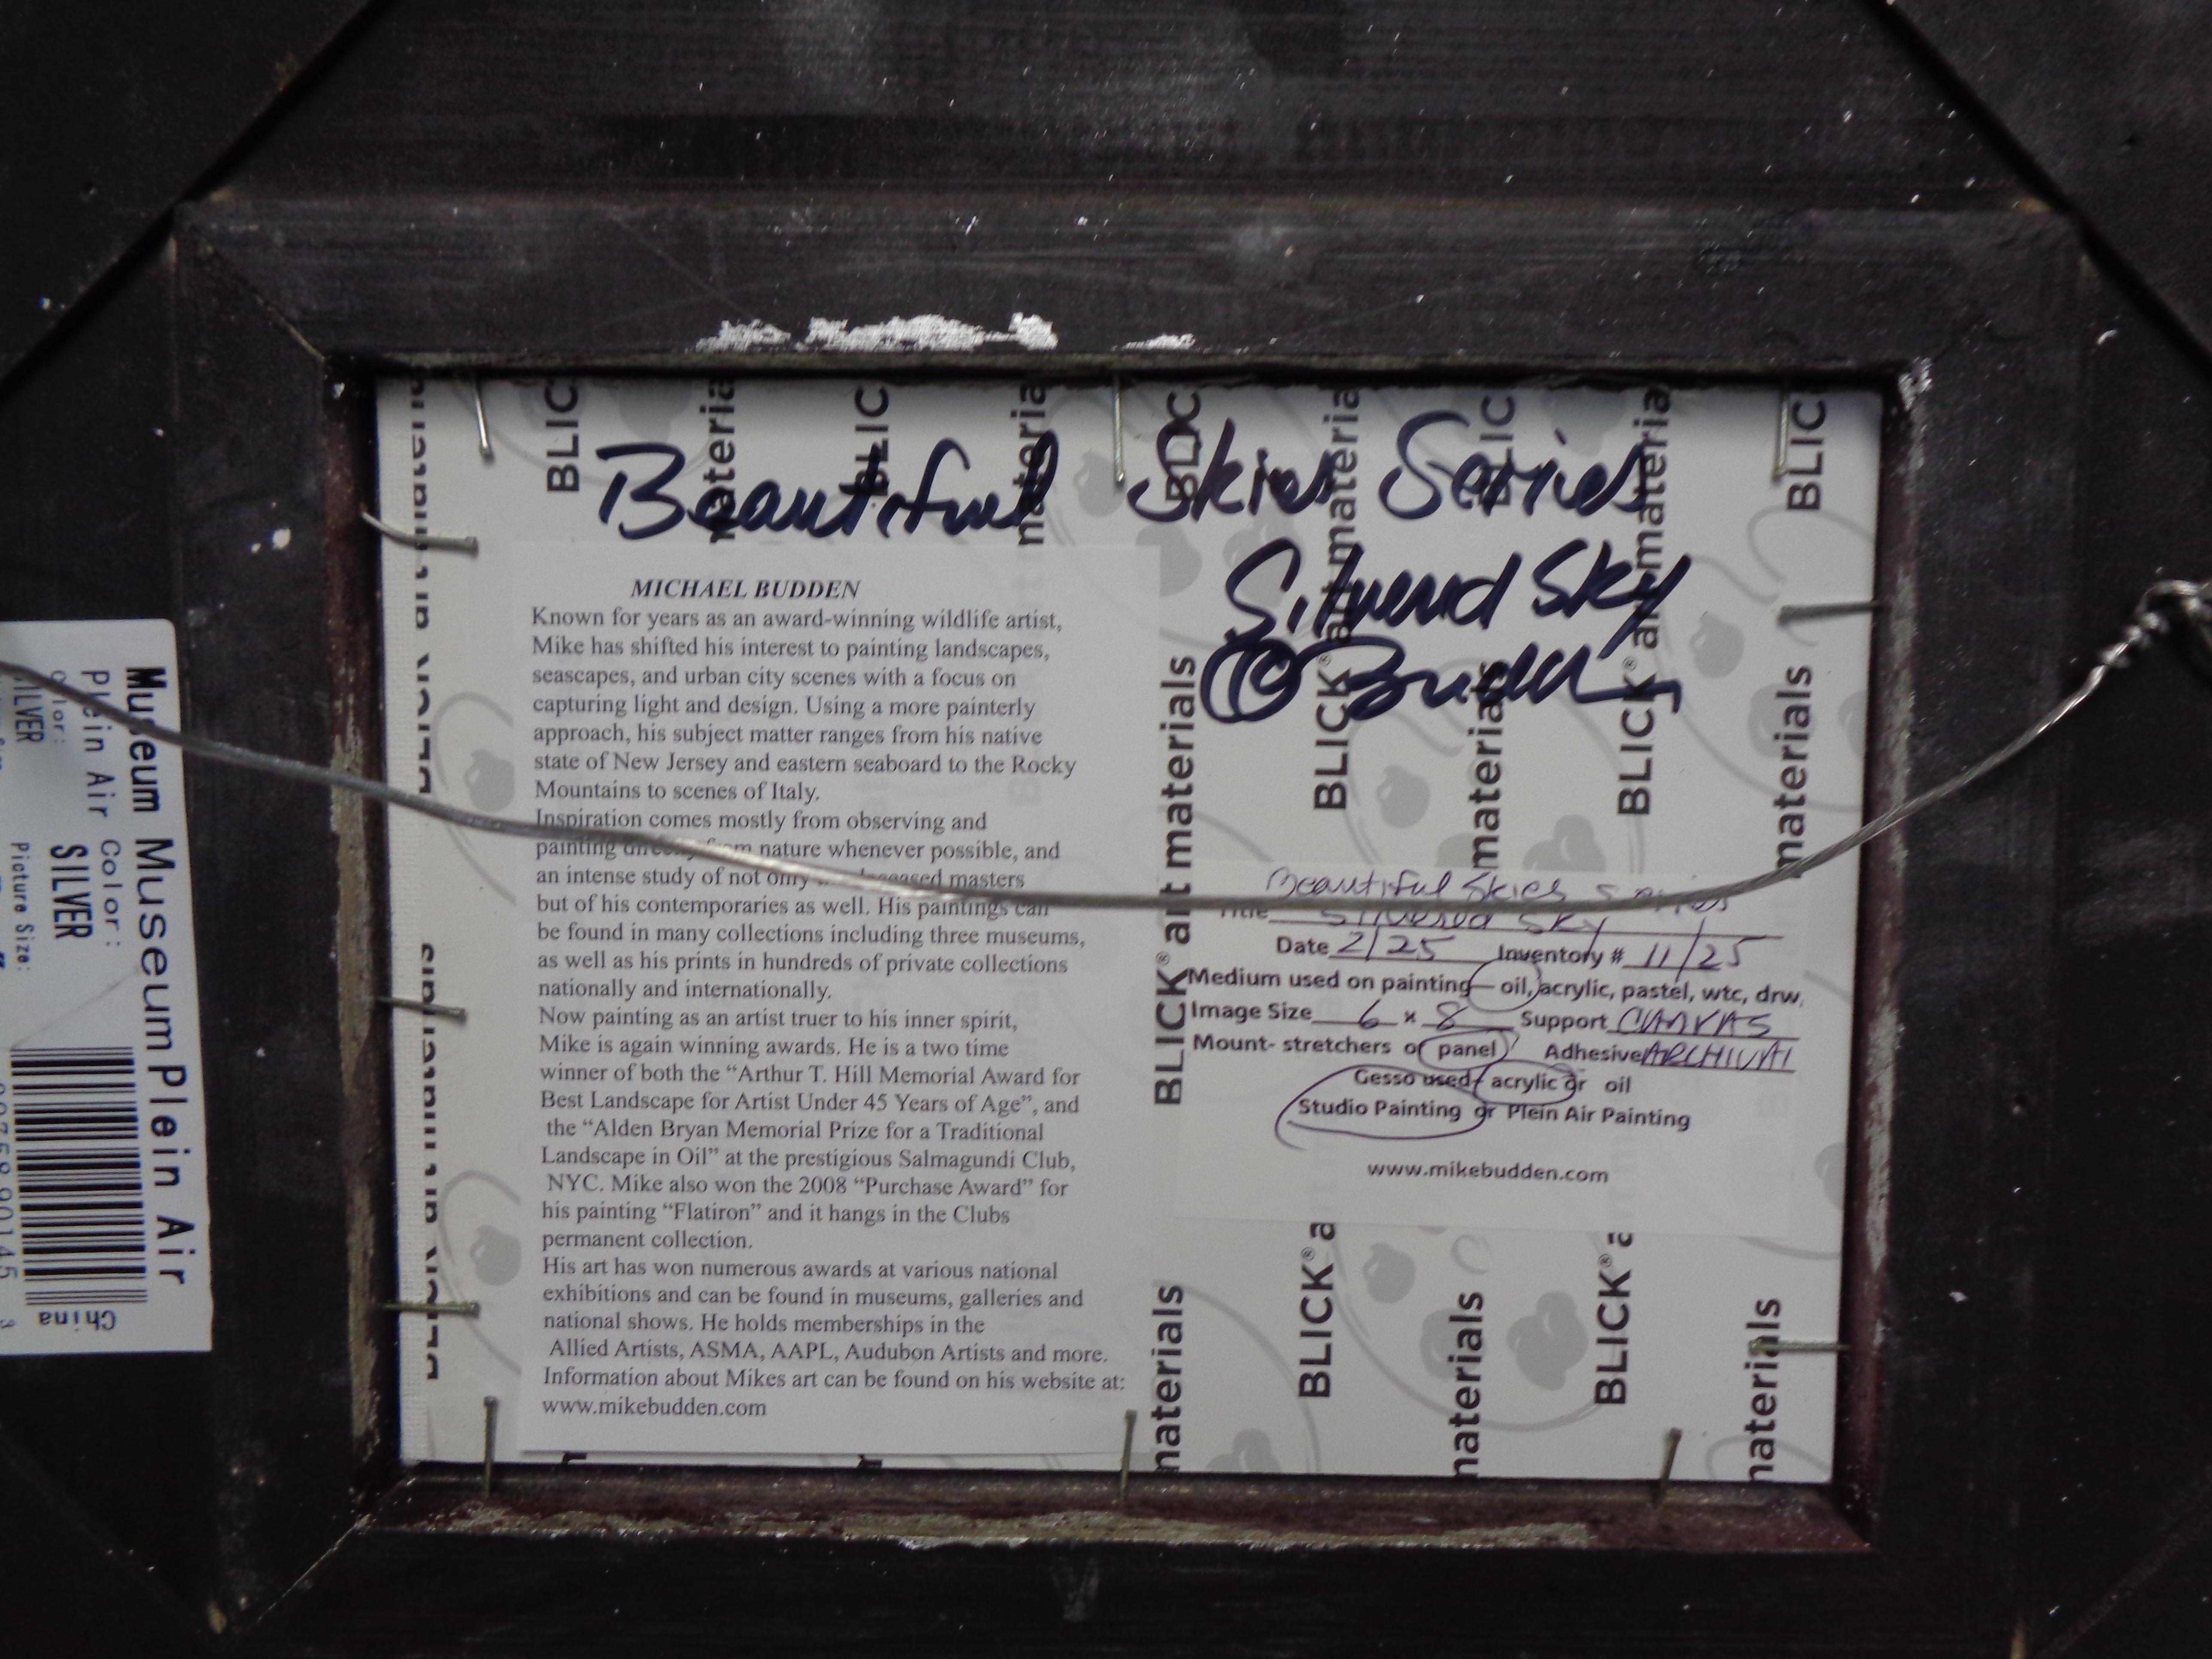 Beautiful Skies Series
Silvered Sky
© Budden
MICHAEL BUDDEN
Known for years as an award-winning wildlife artist,
Mike has shifted his interest to painting landscapes,
seascapes, and urban city scenes with a focus on
capturing light and design. Using a more painterly
approach, his subject matter ranges from his native
state of New Jersey and eastern seaboard to the Rocky
Mountains to scenes of Italy.
Inspiration comes mostly from observing and
painting directly from nature whenever possible, and
an intense study of not only deceased masters
but of his contemporaries as well. His paintings can
be found in many collections including three museums,
as well as his prints in hundreds of private collections
nationally and internationally.
Now painting as an artist truer to his inner spirit,
Mike is again winning awards. He is a two time
winner of both the “Arthur T. Hill Memorial Award for
Best Landscape for Artist Under 45 Years of Age”, and
the “Alden Bryan Memorial Prize for a Traditional
Landscape in Oil” at the prestigious Salmagundi Club,
NYC. Mike also won the 2008 “Purchase Award” for
his painting “Flatiron” and it hangs in the Clubs
permanent collection.
His art has won numerous awards at various national
exhibitions and can be found in museums, galleries and
national shows. He holds memberships in the
Allied Artists, ASMA, AAPL, Audubon Artists and more.
Information about Mikes art can be found on his website at:
www.mikebudden.com
Beautiful Skies Series
Title Silvered Sky
Date 2/25 Inventory # 11/25
Medium used on painting- oil, acrylic, pastel, wtc, drw,
Image Size 6 x 8 Support CANVAS
Mount- stretchers or panel Adhesive ARCHIVAL
Gesso used- acrylic or oil
Studio Painting or Plein Air Painting
www.mikebudden.com
Museum Museum Plein Air
Plein Air Color:
Color: SILVER
SILVER Picture Size:
China
BLICK® art materials
BLICK® art materials
BLICK® art materials
BLICK® art materials